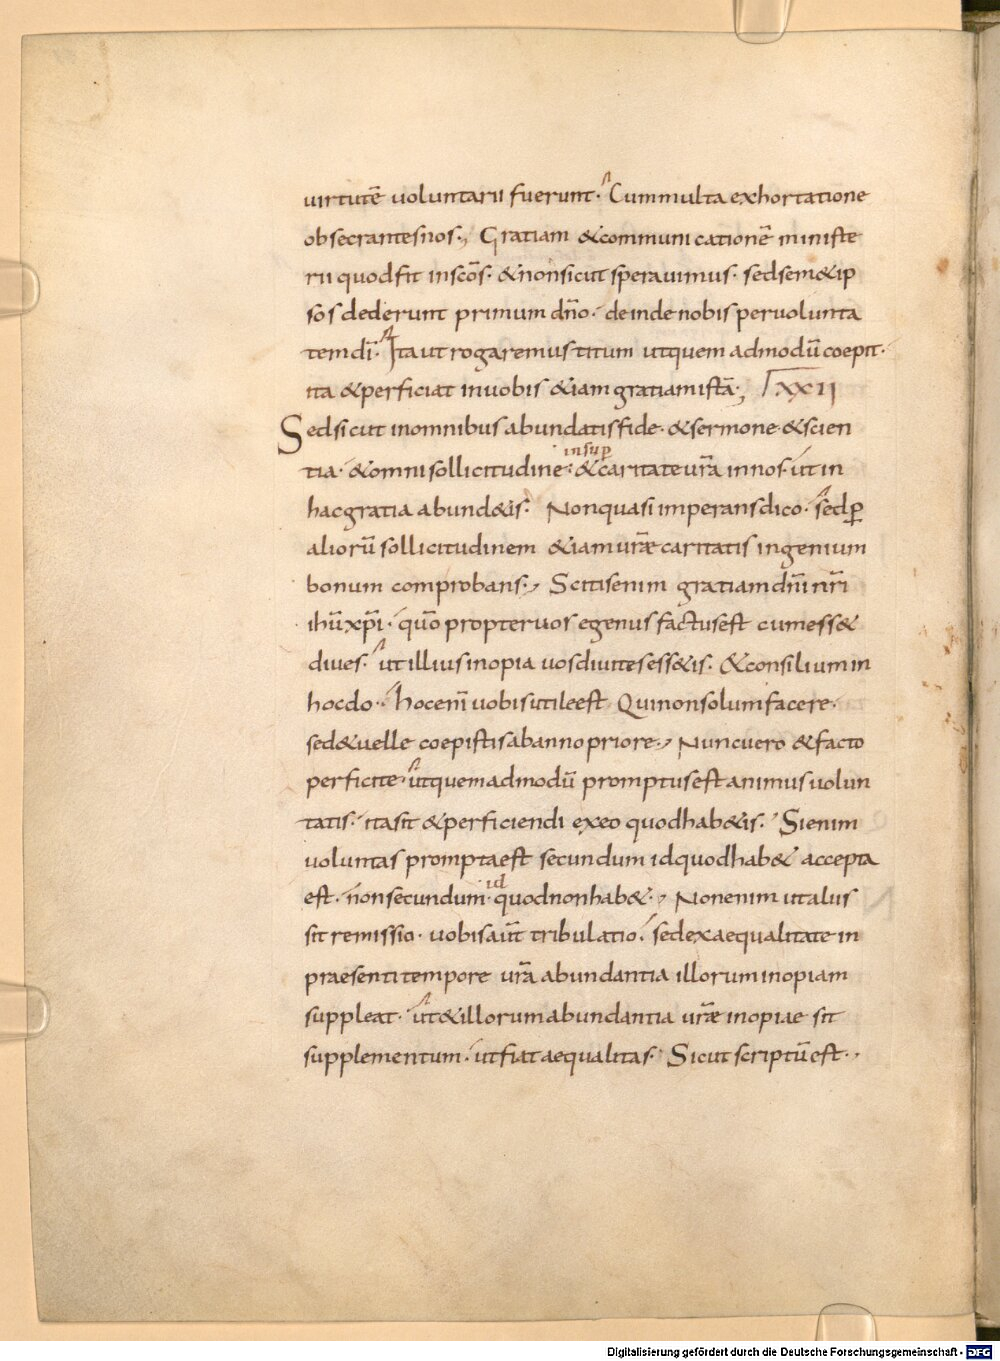 uirtutē uoluntarii fuerunt. Cummulta exhortatione
obsecrantesnos., Gratiam &communicationē ministe
rii quodfit inscōs. &nonsicut sperauimus. sedsem&ip
sos dederunt primum dño. deinde nobis peruolunta
temdī. Itaut rogaremus titum utquem admodū coepit.
ita &perficiat inuobis &iam gratiamistā., XXII
Sedsicut inomnibus abundatis fide. &sermone &scien
tia. &omni sollicitudine. &caritate ur̄a innos. ut in
insup̄
hacgratia abund&is. Nonquasi imperansdico. sedp̄
aliorū sollicitudinem &iam ur̄ae caritatis ingenium
bonum comprobans., Scitisenim gratiamdn̄i nr̄i
ihū xp̄i. qūo propteruos egenus factusest cumess&
diues. ut illius inopia uosdiuitesess&is. &consilium in
hocdo. hocenī uobisutileest Quinonsolumfacere.
sed&uelle coepistis abannopriore., Nuncuero &facto
perficite. utquemadmodū promptusest animus uolun
tatis. itasit &perficiendi exeo quodhab&is. Sienim
uoluntas promptaest secundum idquodhab& accepta
est. nonsecundum id quodnonhab&., Nonenim utalus
sit remissio. uobisaūt tribulatio. sedexaequalitate in
praesenti tempore ur̄a abundantia illorum inopiam
suppleat. ut&illorum abundantia ur̄ae inopiae sit
supplementum. utfiat aequalitas. Sicut scriptū est.,
Digitalisierung gefördert durch die Deutsche Forschungsgemeinschaft - DFG